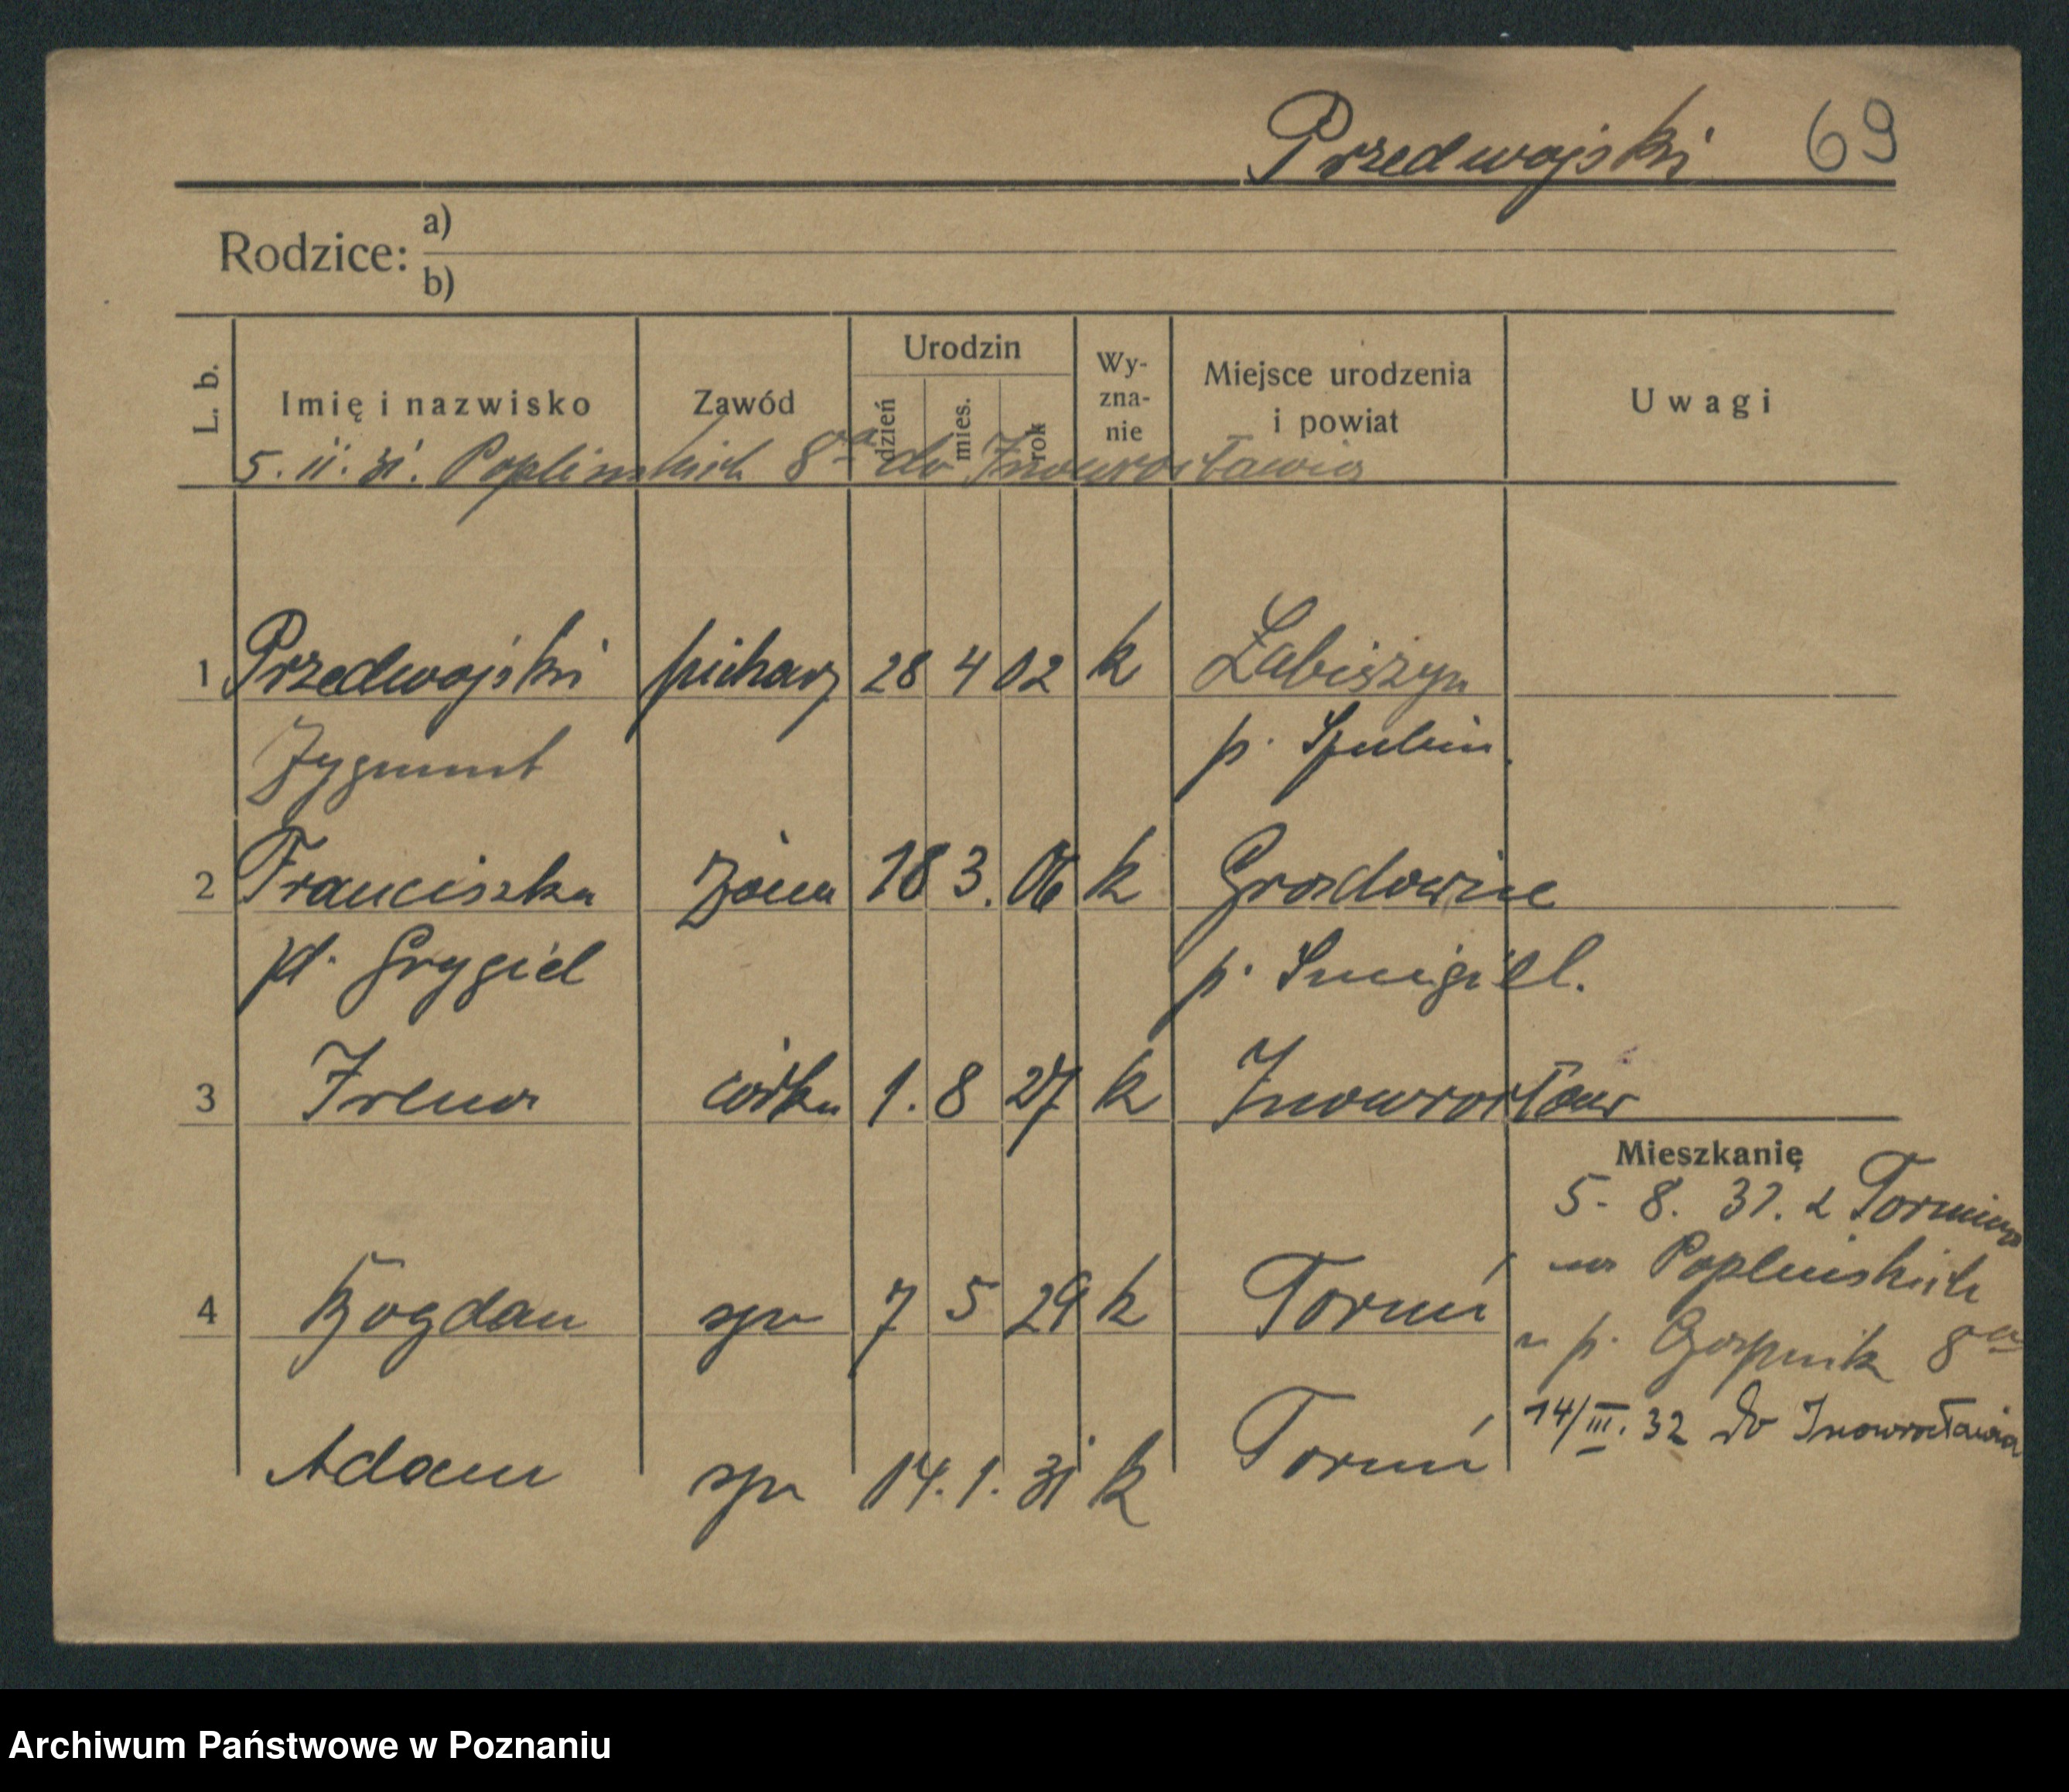 Przedwojski 69
Rodzice: a)
b)
L. b. Imię i nazwisko Zawód Urodzin dzień mies. rok Wy-zna-nie Miejsce urodzenia i powiat Uwagi
5. 11. 31. Poplinskich 8a do Inowrocławia
1 Przedwojski 28 4 02 k Łabiszyn
Zygmunt p. Szubin
2 Franciszka żona 18 3. 06 k
Grygiel p. Smigiel.
3 Irena córka 1. 8 27 k Inowrocław
Mieszkanię
5. 8. 31. z Torunia
na Poplinskich
4 Bogdan syn 7 5 29 k Toruń
u p. 8a
14/III. 32 do Inowrocławia
Adam syn 14. 1. 31 k Toruń
Archiwum Państwowe w Poznaniu